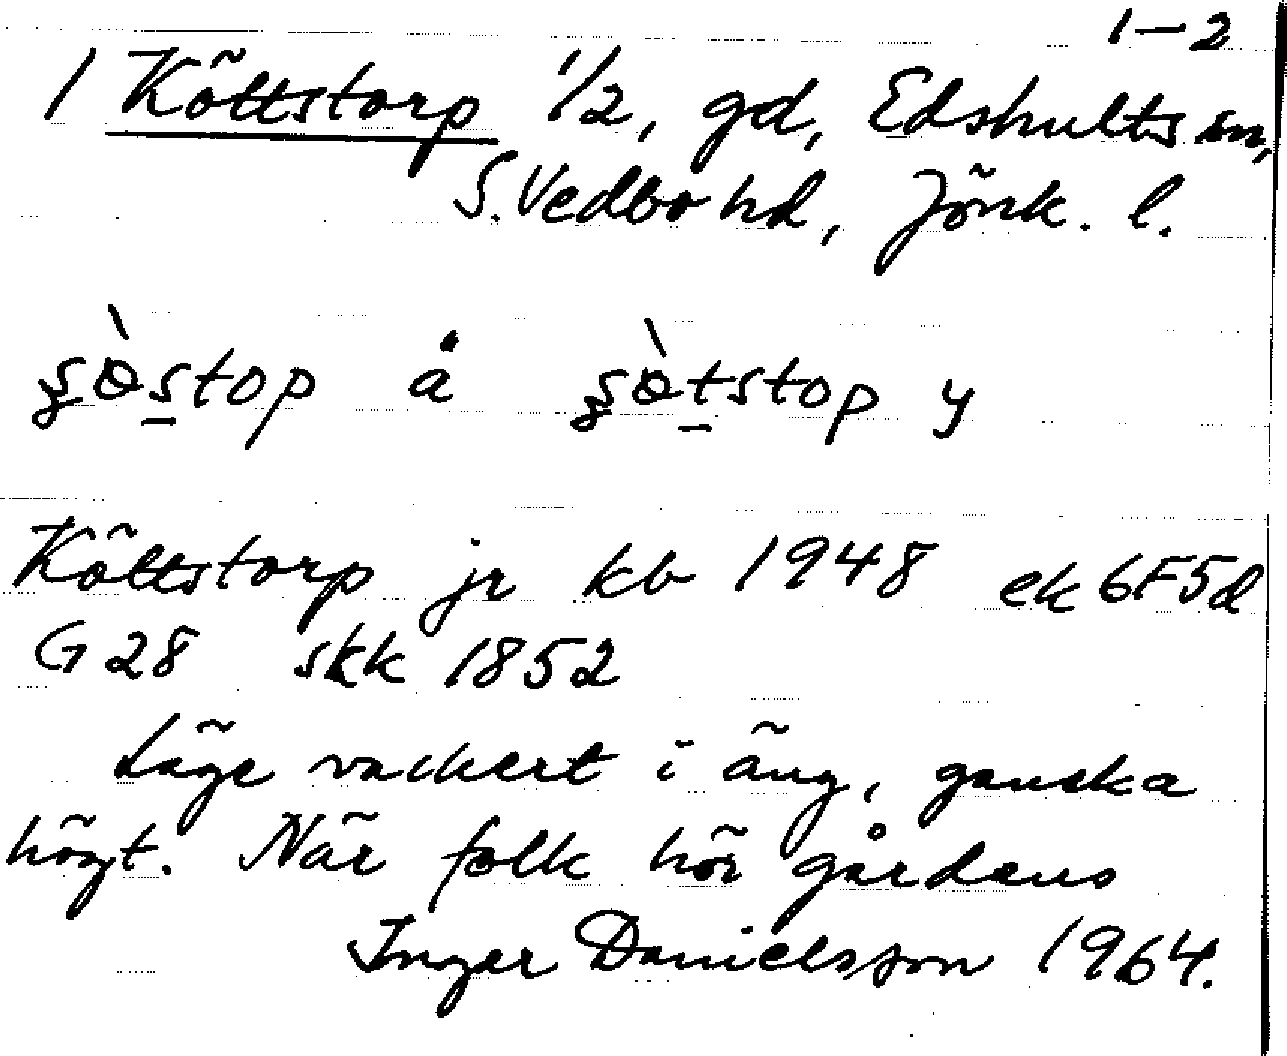 1-2
1 Köttstorp 1/2, gd, Edshults sn,
S. Vedbo hd, Jönk. l.
å y
Köttstorp jr kb 1948 ek 6F5d
G 28 skk 1852
Läge vackert i äng, ganska
högt. När folk hör gårdens
Inger Danielsson 1964.